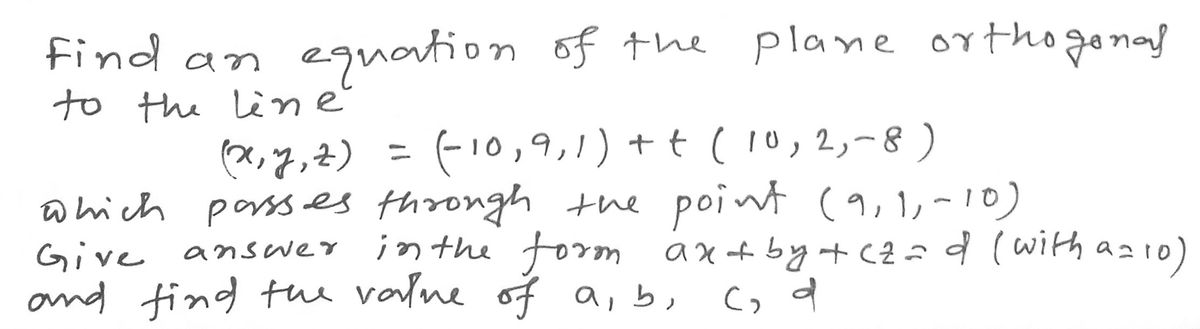 Find an equation of the plane orthogonal
to the line
(x,y,z) = (-10,9,1) + t (10,2,-8)
which passes through the point (9,1,-10)
Give answer in the form ax+by+cz=d (with a=10)
and find the value of a, b, c, d